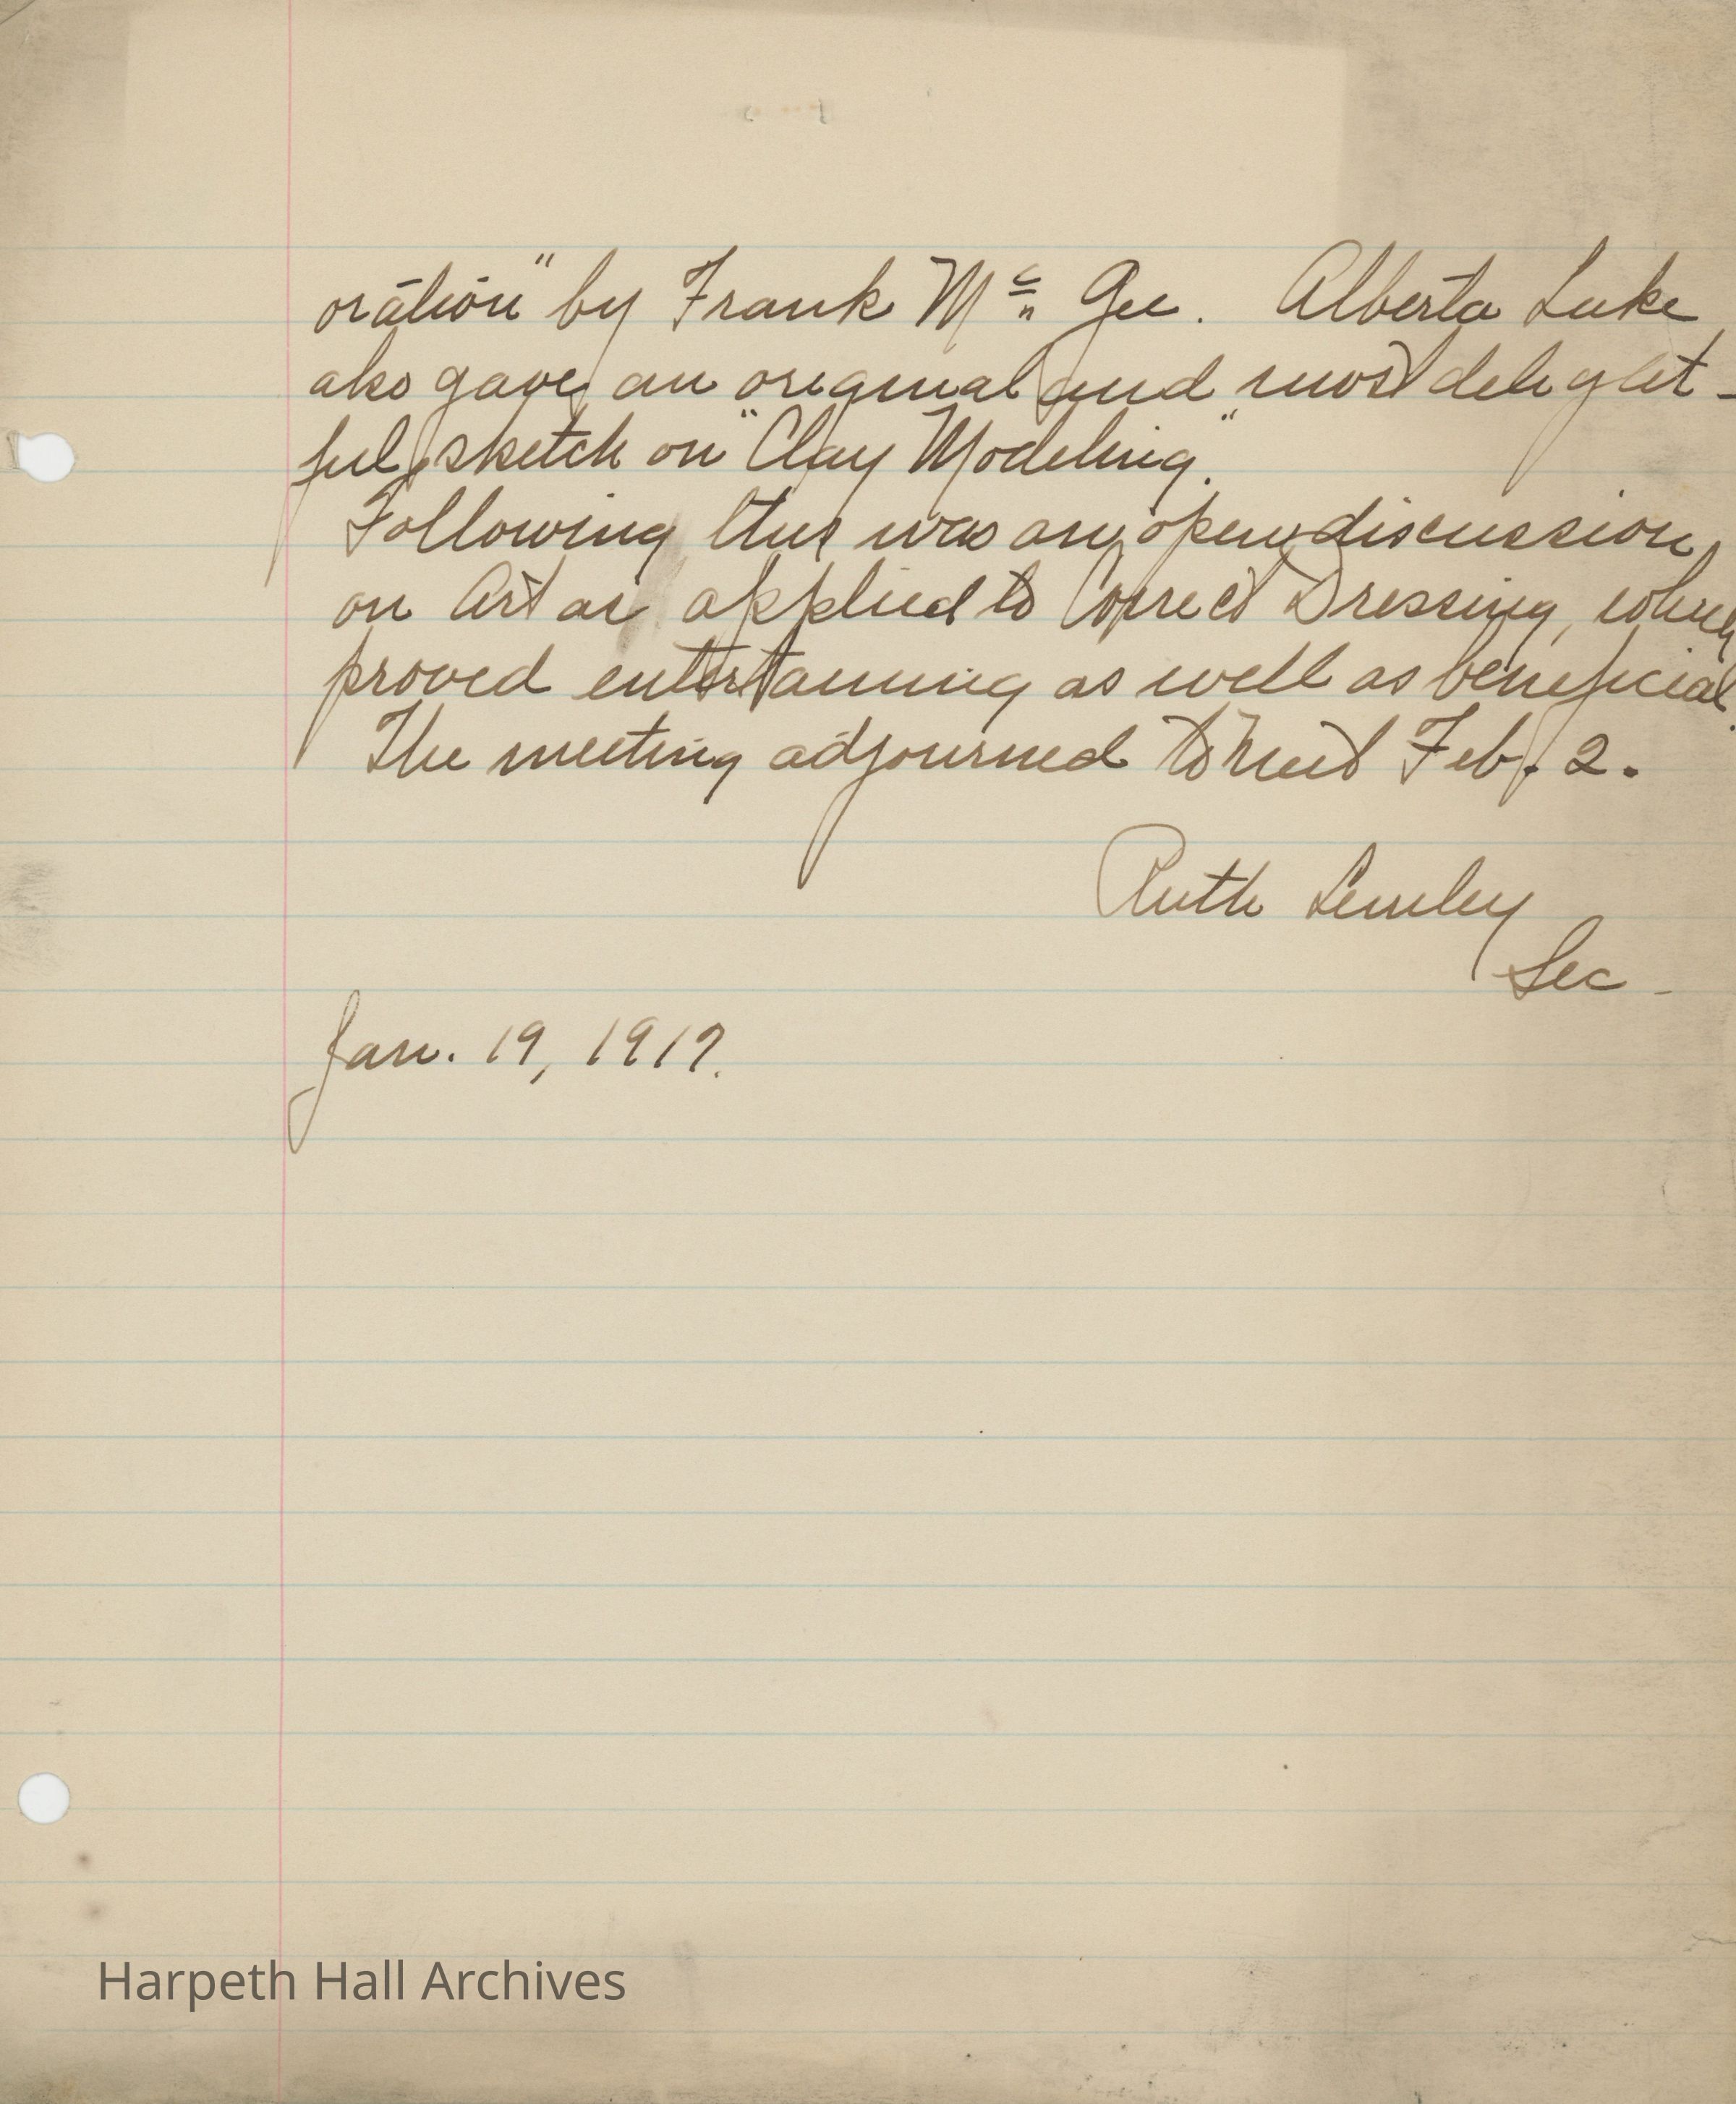 oration" by Frank Mc Gee. Alberta Luke
also gave an original and most delight-
ful sketch on "Clay Modeling".
Following this was an open discussion
on Art as applied to Correct Dressing, which
proved entertaining as well as beneficial.
The meeting adjourned to meet Feb. 2.
Ruth Lemley
Sec.
Jan. 19, 1917.
Harpeth Hall Archives